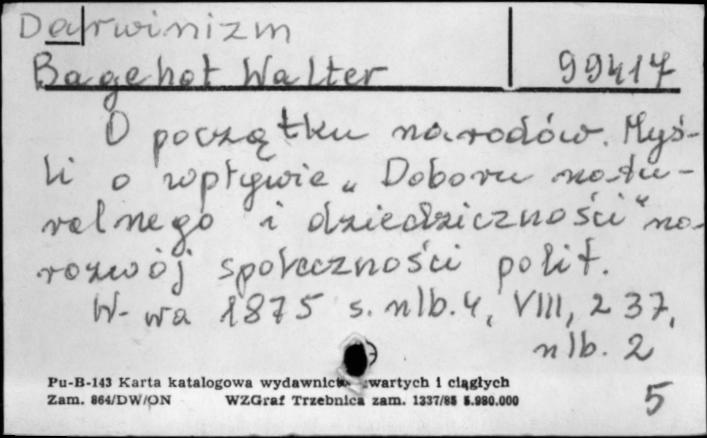 Darwinizm
Bagehot Walter 99417
O początku narodów. Myś-
li o wpływie „Doboru natu-
ralnego i dziedziczności" na
rozwój społeczności polit.
W-wa 1875 s. nlb. 4, VIII, 237,
nlb. 2
Pu-B-143 Karta katalogowa wydawnictw zwartych i ciągłych
Zam. 864/DW/ON WZGraf Trzebnica zam. 1337/85 5.980.000
5